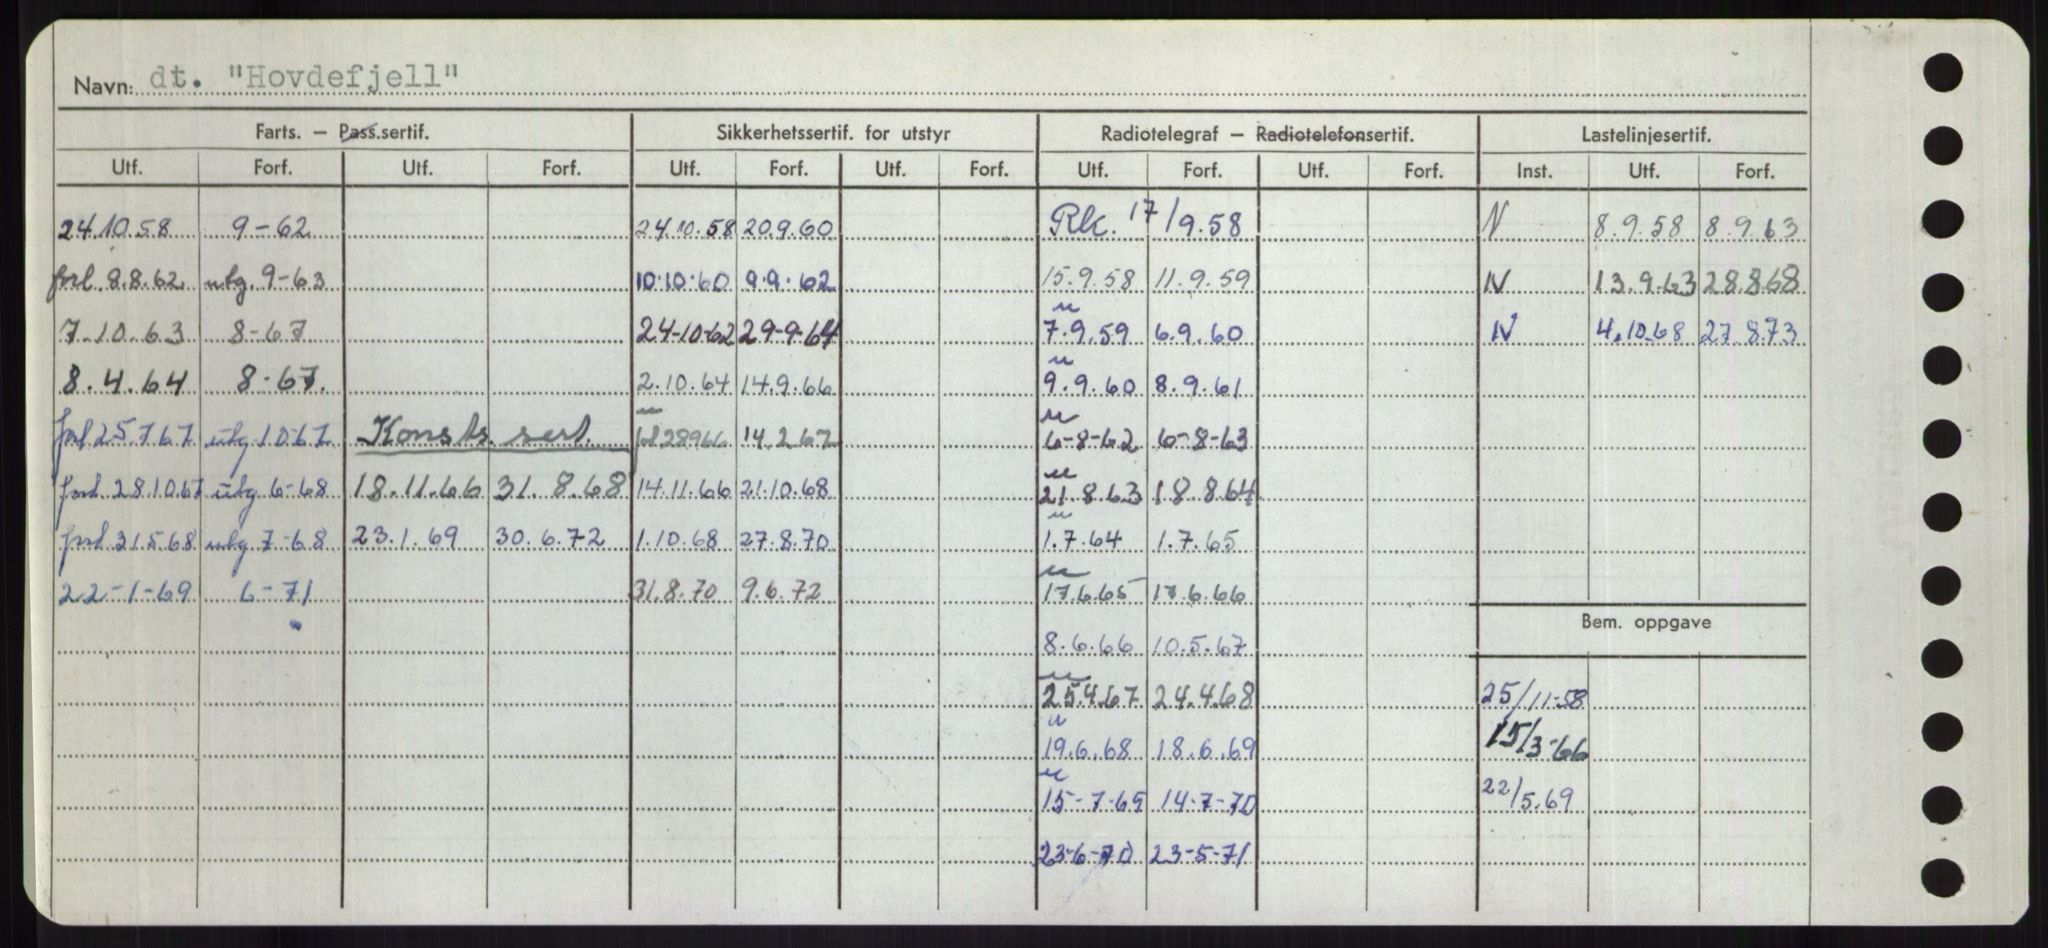 Navn: dt. "Hovdefjell"
Farts. – Pass.sertif. Sikkerhetssertif. for utstyr Radiotelegraf – Radiotelefonsertif. Lastelinjesertif.
Utf. Forf. Utf. Forf. Utf. Forf. Utf. Forf. Utf. Forf. Utf. Forf. Inst. Utf. Forf.
24.10.58 9-62 24.10.58 20.9.60 Rk. 17/9.58 N 8.9.58 8.9.63
forl 8.8.62 utg. 9-63 10.10.60 9.9.62 15.9.58 11.9.59 N 13.9.63 28.8.68
7.10.63 8-67 24-10-62 29-9-64 7.9.59 6.9.60 N 4.10.68 27.8.73
8.4.64 8-67. 2.10.64 14.9.66 9.9.60 8.9.61
forl 25.7.67 utg 10.67 Konsts. sert. 28966 14.2.67 6-8-62 6-8-63
forl. 28.10.67 utg 6-68 18.11.66 31.8.68 14.11.66 21.10.68 21.8.63 18.8.64
forl 31.5.68 utg 7-68 23.1.69 30.6.72 1.10.68 27.8.70 1.7.64 1.7.65
22-1-69 6-71 31.8.70 9.6.72 17.6.65 17.6.66
Bem. oppgave
8.6.66 10.5.67
25.4.67 24.4.68 25/11-58
19.6.68 18.6.69 15/3-66
15-7-69 14-7-70 22/5.69
23-6-70 23-5-71